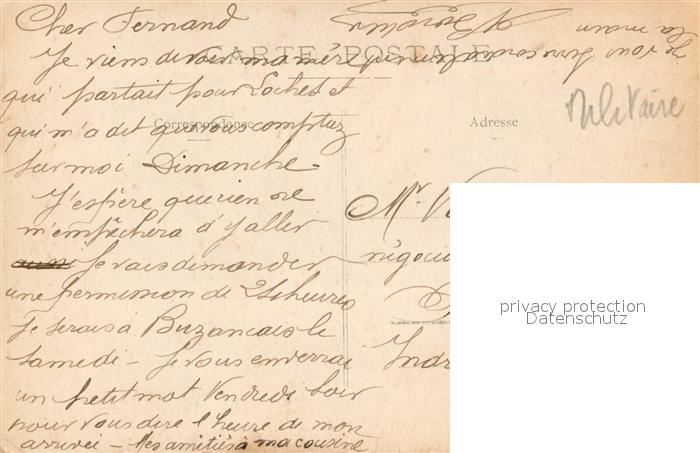 CARTE POSTALE
Correspondance
Adresse
Militaire
Cher Fernand
Je viens de voir ma mère
qui partait pour Loches et
qui m'a dit que vous comptez
sur moi Dimanche.
J'espère que rien ne
m'empêchera d'y aller
Je vais demander
une permission de 24 heures
Je serais à Buzancais le
Samedi - Je vous enverrai
un petit mot Vendredi soir
pour vous dire l'heure de mon
arrivée - Mes amitiés à ma cousine
Je vous serre
la main
Mr V
négoci
Indr
privacy protection
Datenschutz